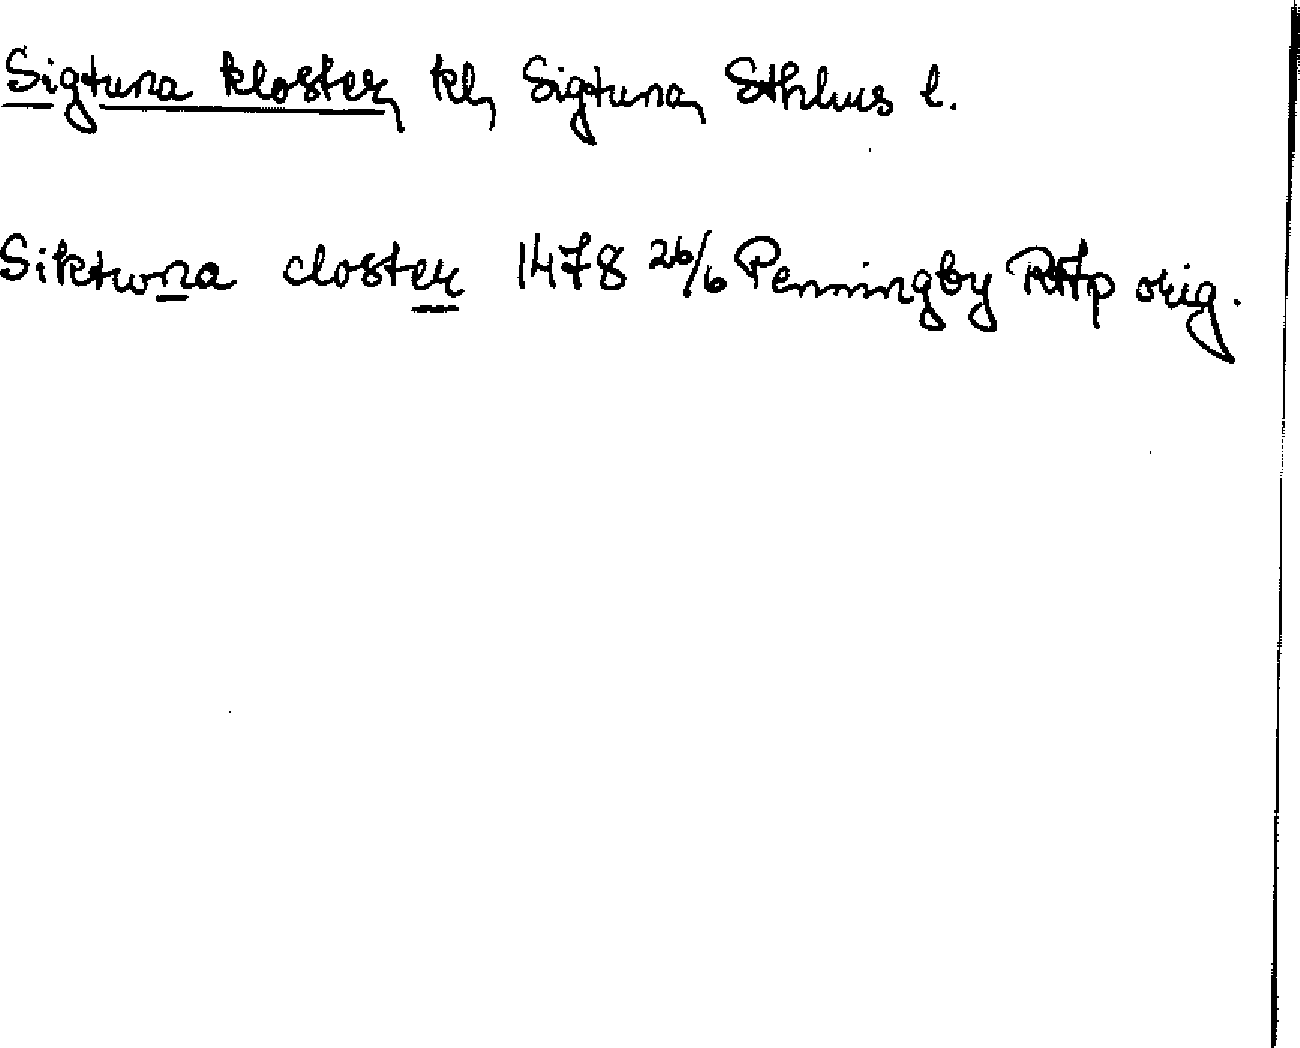 Sigtuna kloster, kl, Sigtuna, Sthlms l.
Siktwna closter 1478 26/6 Penningby RAp orig.